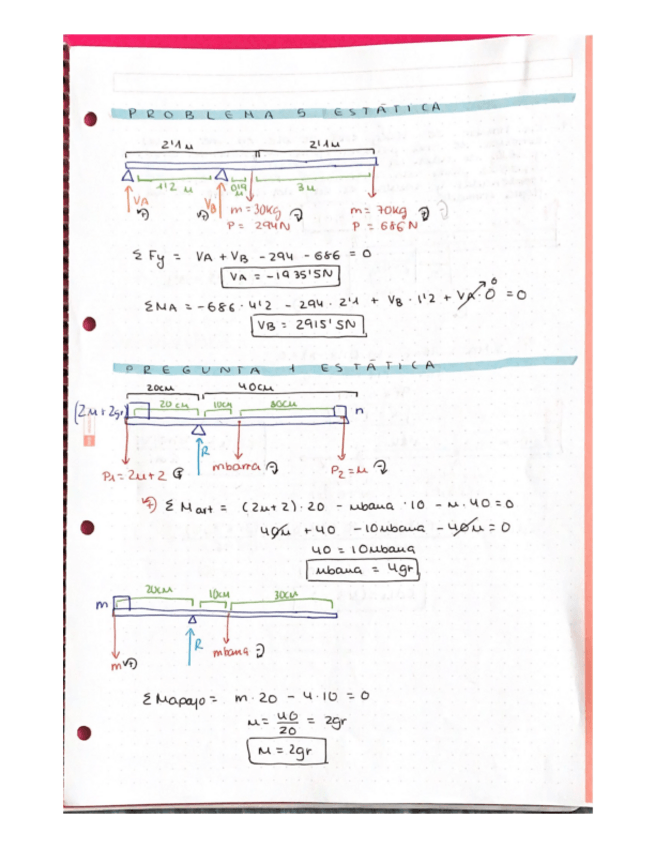 PROBLEMA 5 ESTÁTICA
2'1m 2'1m
1'2 m 0'9 m 3m
VA VB m = 30kg m = 70kg
P = 294N P = 686N
ΣFy = VA + VB - 294 - 686 = 0
VA = -1935'5N
ΣMA = -686 · 4'2 - 294 · 2'1 + VB · 1'2 + VA · 0 = 0
0
VB = 2915'5N
PREGUNTA 1 ESTÁTICA
20cm 40cm
(2m+2gr) 20cm 10cm 30cm m
R
P1 = 2m+2 mbarra P2 = m
ΣMart = (2m+2) · 20 - mbarra · 10 - m · 40 = 0
40m + 40 - 10mbarra - 40m = 0
40 = 10mbarra
mbarra = 4gr
20cm 10cm 30cm
m
R mbarra
m
ΣMapoyo = m · 20 - 4 · 10 = 0
m = 40/20 = 2gr
m = 2gr